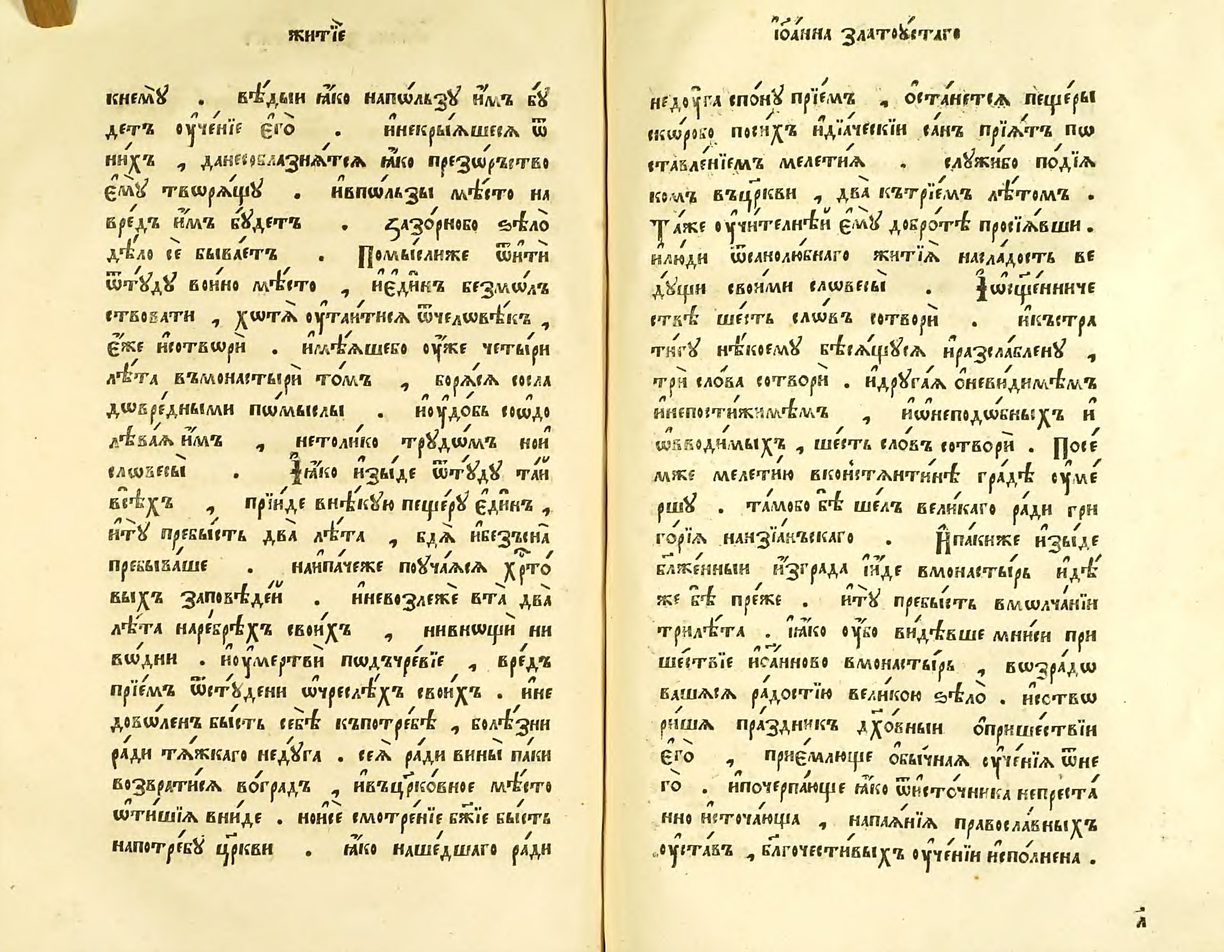 житїе
кнемꙋ̀ . вѣ́дыи ꙗ҆́ко напо́льзꙋ и҆́мъ бꙋ́
детъ оу҆че́нїе є҆го̀ . и҆некры́ѧшесѧ ѿ
ни́хъ , данесоблазнѧ́тсѧ ꙗ҆́ко презѡ́рьство
є҆мꙋ̀ твѡрѧ́щꙋ . и҆впѡ́льзы мѣ́сто на
вре́дъ и҆́мъ бꙋ́детъ . Зазо́рнобо ѕѣло̀
дѣ́ло сѐ быва́етъ . Помы́слиже ѿи́ти
ѿтꙋ́дꙋ во́ино мѣ́сто , и҆є҆ди́нъ безмѡ́лъ
ствовати , хѡтѧ̀ оу҆таи́тисѧ ѿчелѡвѣ́къ ,
є҆́же и҆сотвѡрѝ . и҆мѣ́ѧшебо оу҆́же четы́ри
лѣ́та въмонастырѝ то́мъ , борѧ́сѧ сосла
дѡвре́дными пѡ́мыслы . и҆оу҆до́бь сѡѡдо
лѣва́ѧ и҆́мъ , нето́лико трꙋдѡ́мъ но́и
слѡвесы̀ . І҆ꙗ҆́ко и҆зы́де ѿтꙋ́дꙋ та́и
всѣ́хъ , прїи́де внѣ́кꙋю пеще́рꙋ є҆ди́нъ ,
и҆тꙋ̀ пребы́сть два̀ лѣ́та , бдѧ̀ и҆безъсна̀
пребыва́ше . наи́паче́же поуча́ѧсѧ хрⷭ҇то́
выхъ за́повѣдеи . и҆невозлежѐ вта̀ два̀
лѣ́та наре́брѣхъ свои́хъ , нивнощѝ ни
вѡ́дни . и҆оу҆мертвѝ пѡдъчре́вїе , вре́дъ
прїе́мъ ѿстꙋ́дени ѡ҆чре́слѣхъ свои́хъ . и҆не
довѡ́ленъ бы́сть себѣ̀ къпотре́бѣ , болѣ́зни
ра́ди тѧ́жкаго недꙋ́га . сеѧ̀ ра́ди вины̀ па́ки
возврати́сѧ во́градъ , и҆въцр҃ко́вное мѣ́сто
ѡ҆тиши́ѧ вни́де . но́исе смотре́нїе бж҃їе бы́сть
напотре́бꙋ цр҃кви . ꙗ҆́ко наше́дшаго ра́ди
і҆ѡа́нна златоꙋ́стаго
недоу́га спо́нꙋ прїе́мъ , ѡ҆ста́нетсѧ пеще́ры
ско́рѡбо поси́хъ и҆дїа́ческїи са́нъ прїѧ́тъ пѡ
ставле́нїемъ меле́тиѧ . слꙋжи́бо по́дїѧ
комъ въцр҃кви , два̀ кътрїе́мъ лѣ́томъ .
Та́же оу҆чи́телнѣи є҆мꙋ̀ добротѣ̀ просїѧ́вши .
и҆лю́ди ѿсанолюбнаго житїѧ̀ насла́дость ве
дꙋ́щи свои́ми слѡвесы̀ . І҆ѡсщ҃е́нниче
ствѣ̀ ше́сть слѡ́въ сотворѝ . и҆къстра
ти́гꙋ нѣ́коемꙋ бѣсѧ́щꙋсѧ и҆разсла́бленꙋ ,
трѝ сло́ва сотворѝ . и҆дрꙋга́ѧ ѡ҆неви́димѣмъ
и҆непостижи́мѣмъ , и҆ѡнеподо́бныхъ и҆
ѡ҆вводи́мыхъ , ше́сть сло́въ сотворѝ . Посе́
мже меле́тию вконстѧнти́нѣ гра́дѣ оу҆ме́
ршꙋ . та́мобо бѣ̀ ше́лъ вели́каго ра́ди гри
го́рїѧ нанзїа́нъскаго . И҆па́киже и҆зы́де
бл҃же́нныи и҆згра́да и҆и́де вмонасты́рь и҆дѣ́
же бѣ̀ пре́же . и҆тꙋ̀ пребы́сть вмолча́нїи
трилѣ́та . ꙗ҆́ко оу҆́бо ви́дѣвше мни́си при
ше́ствїе и҆ѡа́нново вмонасты́рь , вѡзра́дѡ
вашасѧ ра́достїю вели́кою ѕѣло̀ . и҆сствѡ
ри́шѧ пра́здникъ дх҃о́вныи ѡ҆прише́ствїи
є҆го̀ , прие́млюще ѡ҆бы́чнаѧ оу҆че́нїѧ ѿне
го̀ . и҆почерпа́юще ꙗ҆́ко ѿи́сточника непреста́
нно и҆сточа́юща , напаѧ́нїѧ правосла́вныхъ
оу҆ста́въ , бл҃гочести́выхъ оу҆че́нїи и҆спо́лнена .
л҃